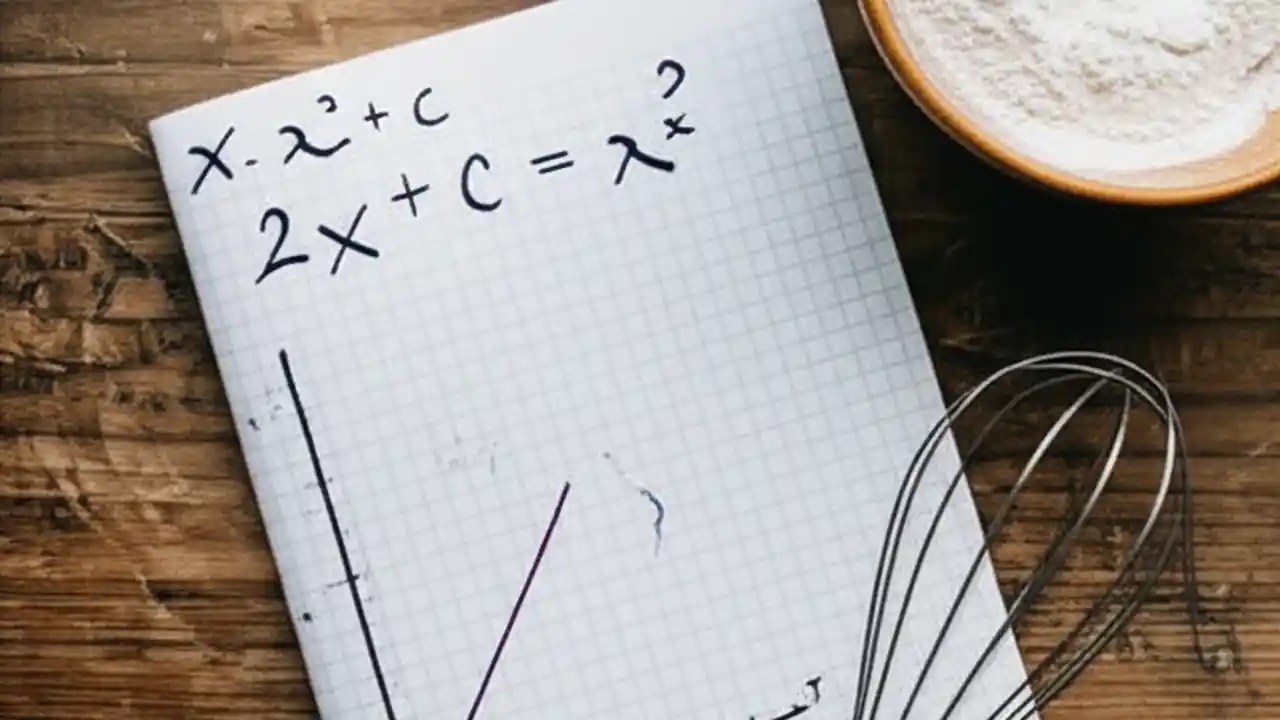 x - x² + c
2x + c = x^x